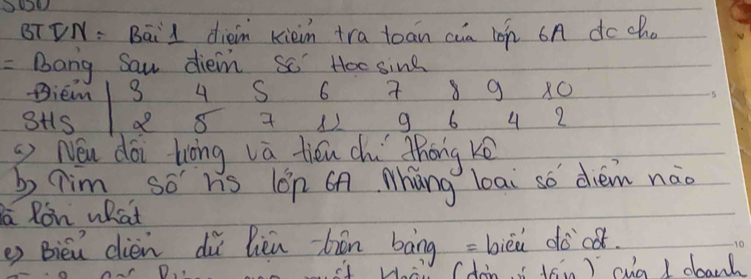 BTVN: Bài 1 điểm kiểm tra toán của lớp 6A dc cho
= Bảng sau điểm số Học sinh
Điểm | 3 4 5 6 7 8 9 10
SHS | 2 5 7 12 9 6 4 2
a) Nêu đối tượng và tiêu chí thống kê
b) Tìm số hs lớp 6A. Những loại số điểm nào
là lớn nhất
c) Biểu diễn dữ liệu trên bảng = biểu đồ cột.
(đơn vị tấn) của 1 doanh